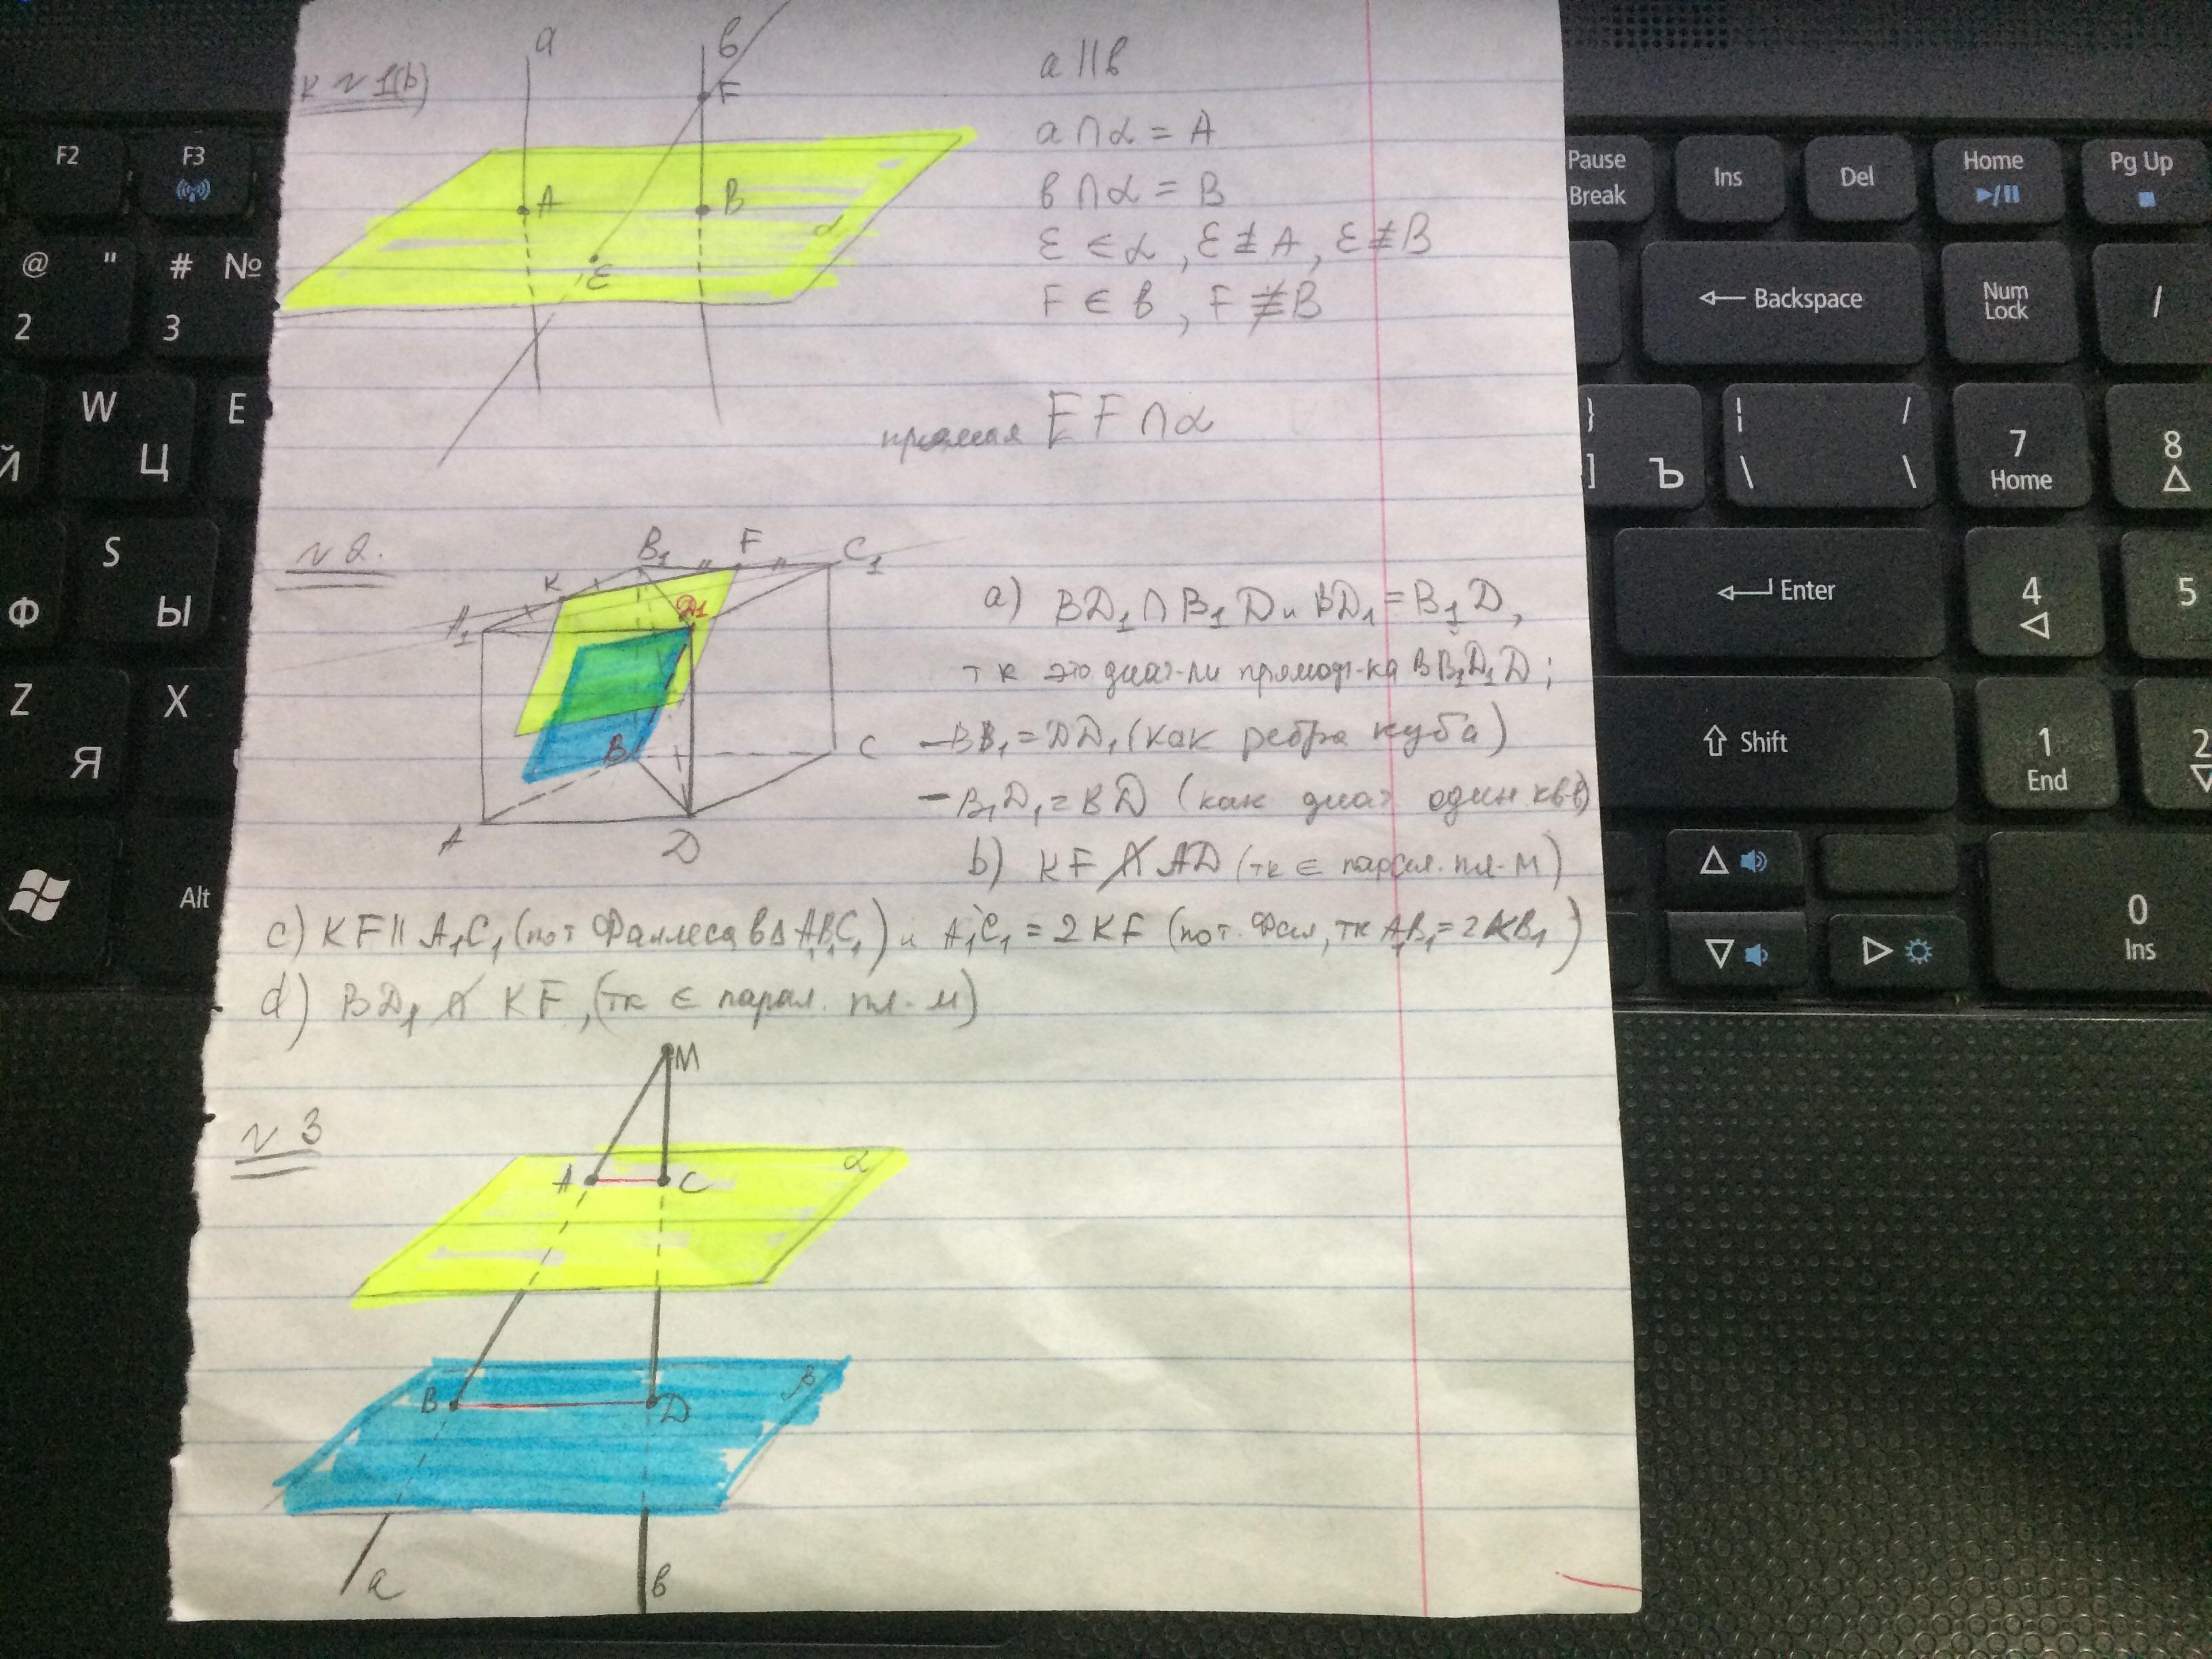 к № 1(b)
a
b
F
A
B
α
ε
a || b
a ∩ α = A
b ∩ α = B
ε ∈ α, ε ≢ A, ε ≢ B
F ∈ b, F ≢ B
прямая EF ∩ α
№ 2.
B₁ F C₁
K
A₁ D₁
B C
A D
a) BD₁ ∩ B₁D и BD₁ = B₁D,
тк это диаг-ли прямоуг-ка BB₁D₁D;
– BB₁ = DD₁ (как ребра куба)
– B₁D₁ = BD (как диаг один кв в)
b) KF ∩̸ AD (тк ∈ парал. пл-м)
c) KF || A₁C₁ (по т Фаллеса в Δ A₁B₁C₁) и A₁C₁ = 2 KF (по т. Фал, тк A₁B₁ = 2KB₁)
d) BD₁ ∩̸ KF, (тк ∈ парал. пл-м)
№ 3
M
A C α
B D β
a b
F2 F3
@ " # №
2 3
W E
Й Ц
S
Ф Ы
Z X
Я
Alt
Pause Break Ins Del Home Pg Up
Backspace Num Lock /
} ] Ъ | \ / \ 7 Home 8
Enter 4 5
Shift 1 End 2
0 Ins